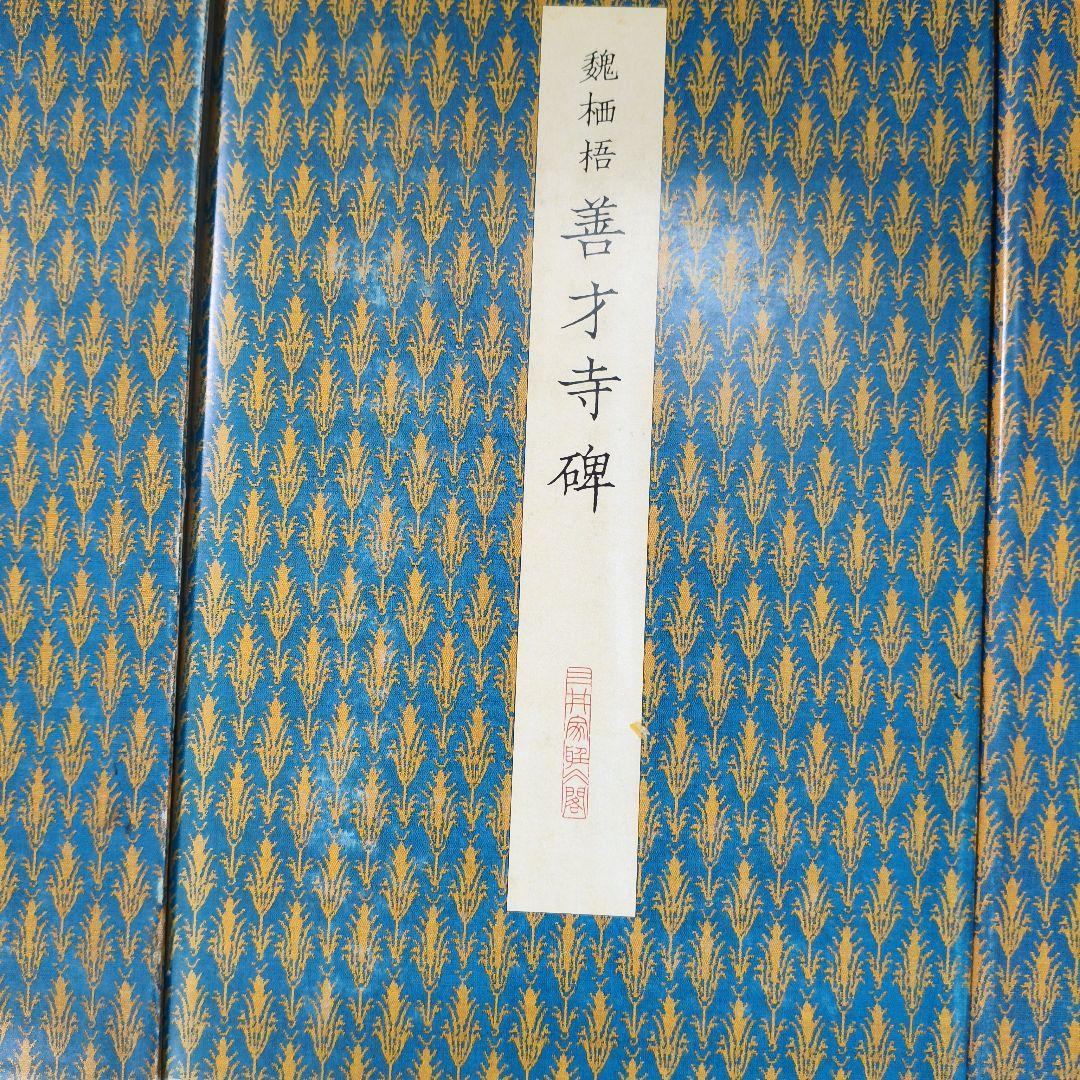 魏栖梧善才寺碑
三井家聴氷閣